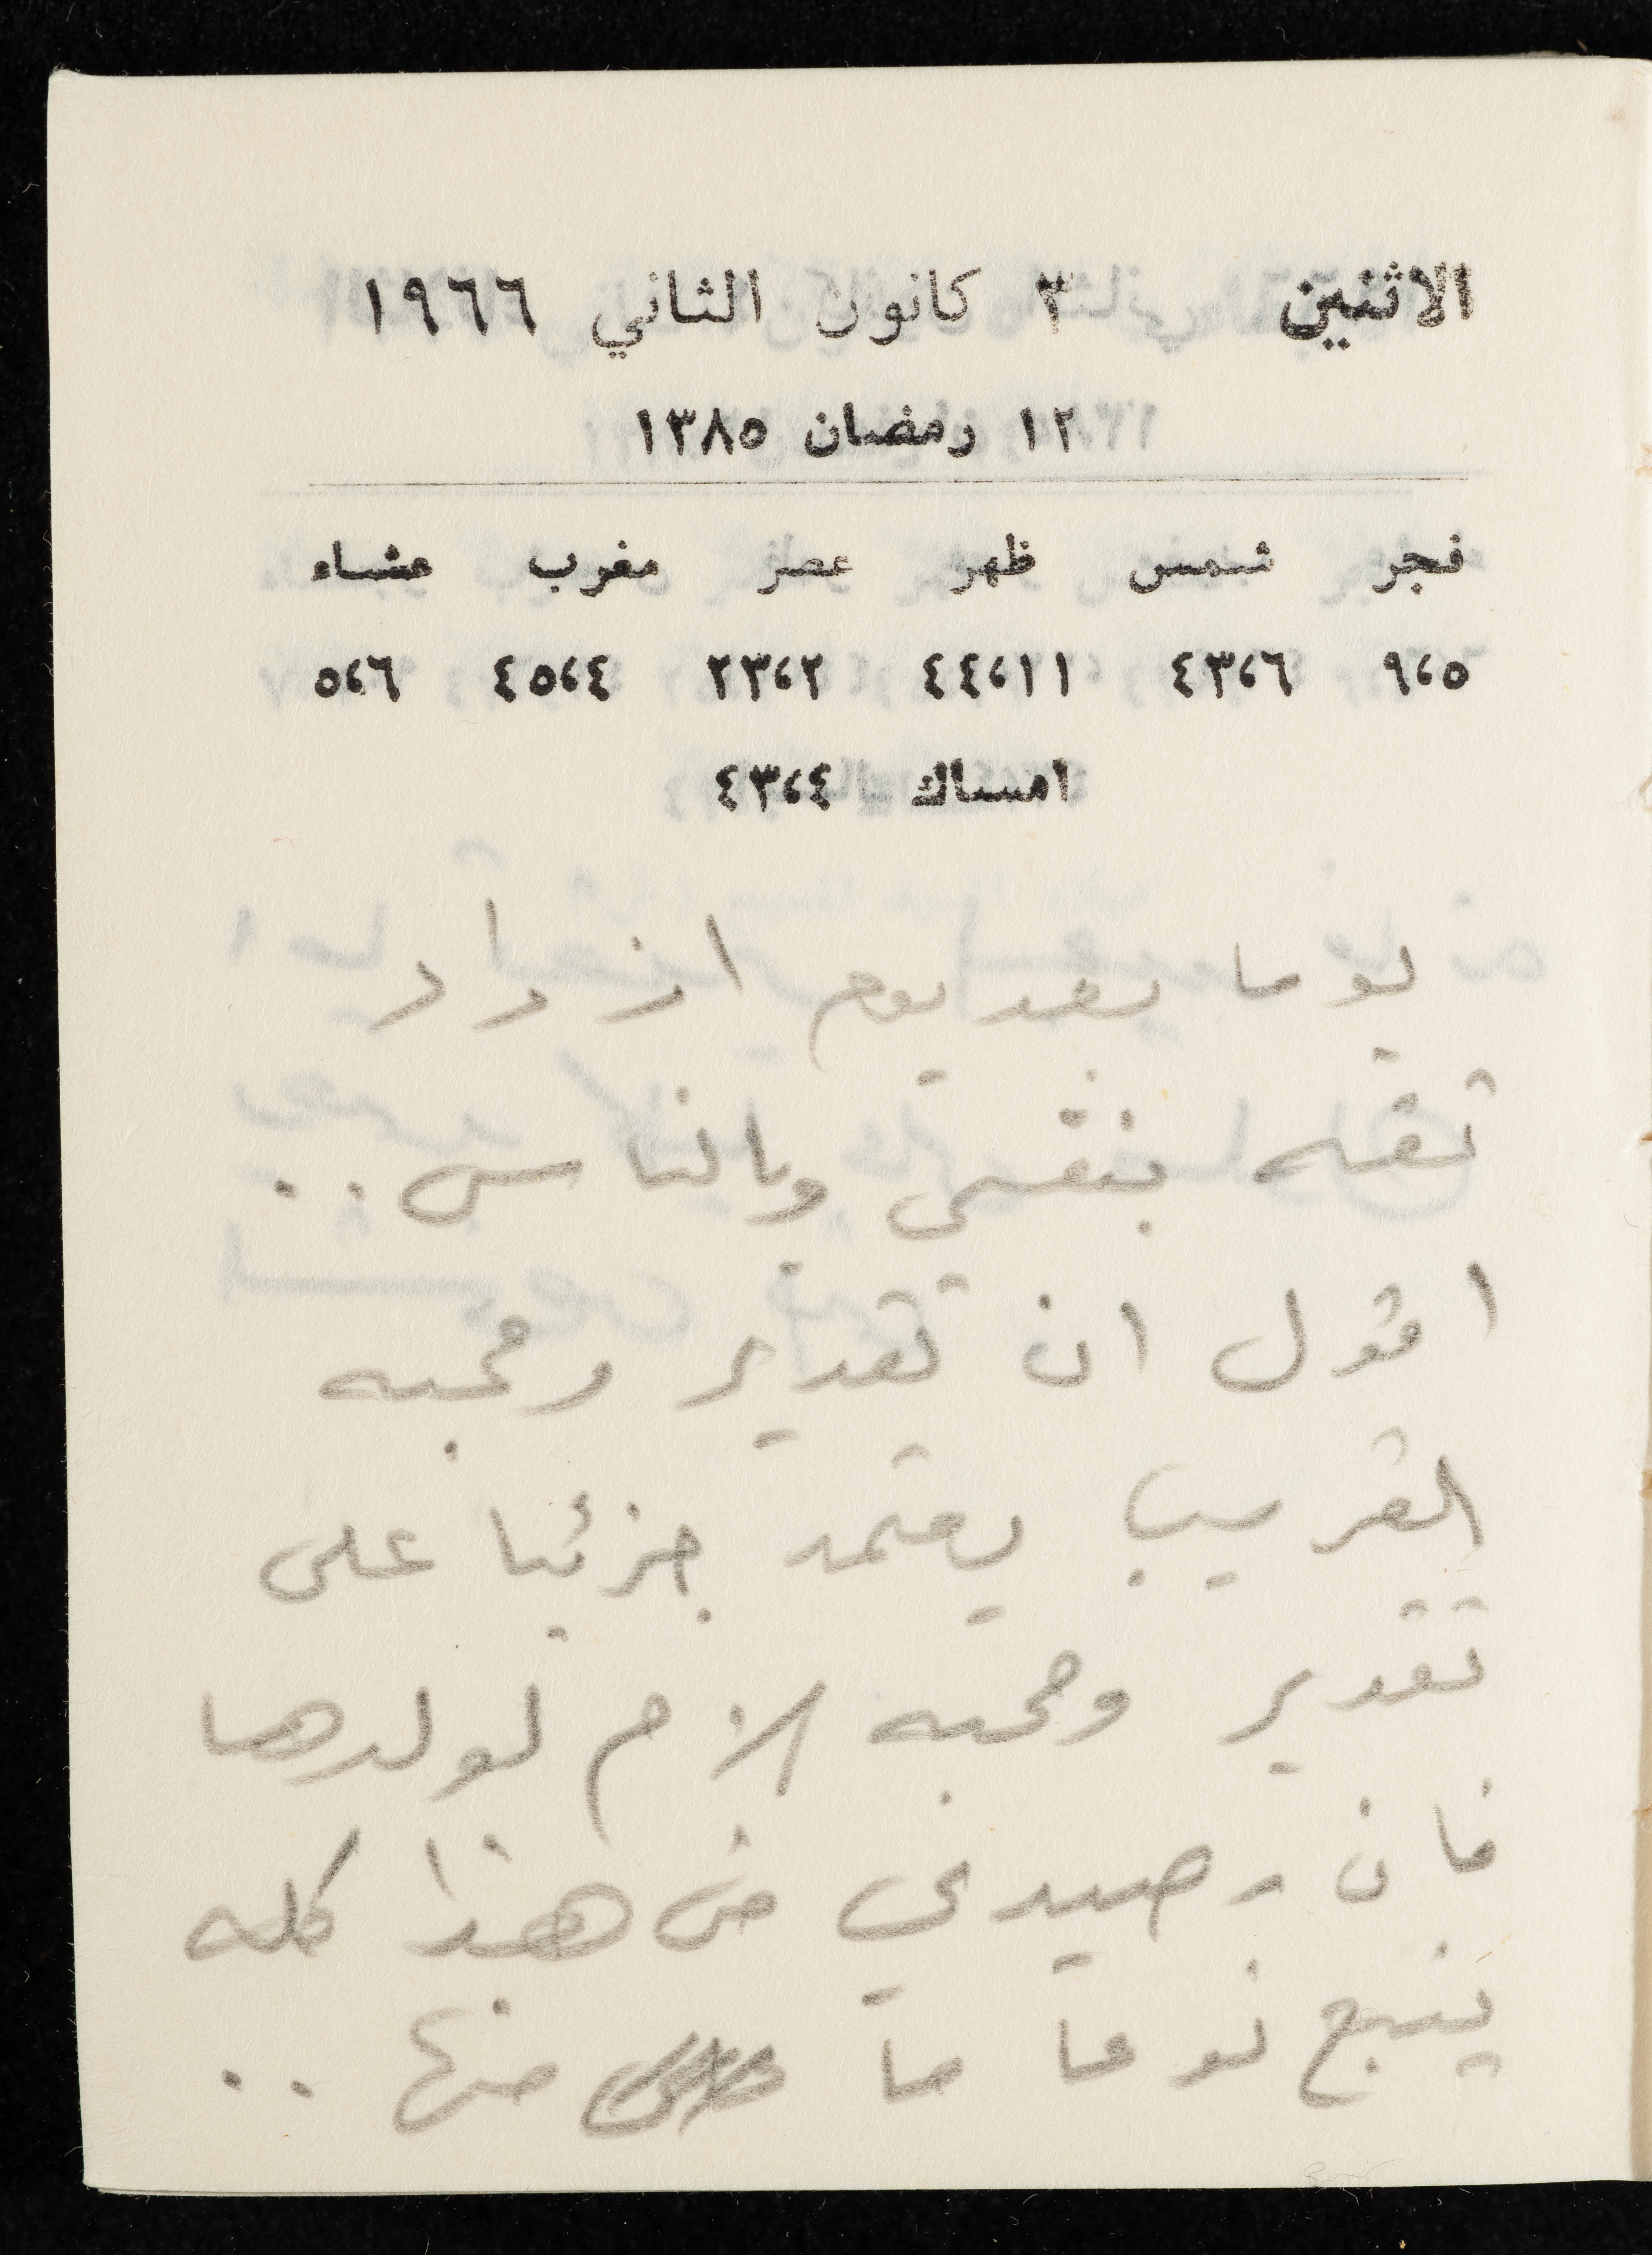 الاثنين ٣ كانون الثاني ١٩٦٦
١٢ رمضان ١٣٨٥
فجر شمس ظهر عصر مغرب عشاء
٩،٥ ٤٣،٦ ٤٤،١١ ٢٣،٢ ٤٥،٤ ٥،٦
امساك ٤٣،٤
يوما بعد يوم ازداد
ثقه بنفسي وبالناس ..
اقول ان تقدير ومحبه
القريب يعتمد جزئيا على
تقدير ومحبه الام لولدها
فان رصيدي من هذا كله
ينبع نوعا ما منها ..